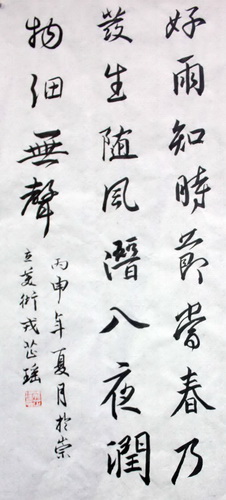 好雨知時節當春乃
發生随風潛入夜潤
物细無聲
丙申年夏月於崇
立美術戎芷瑶